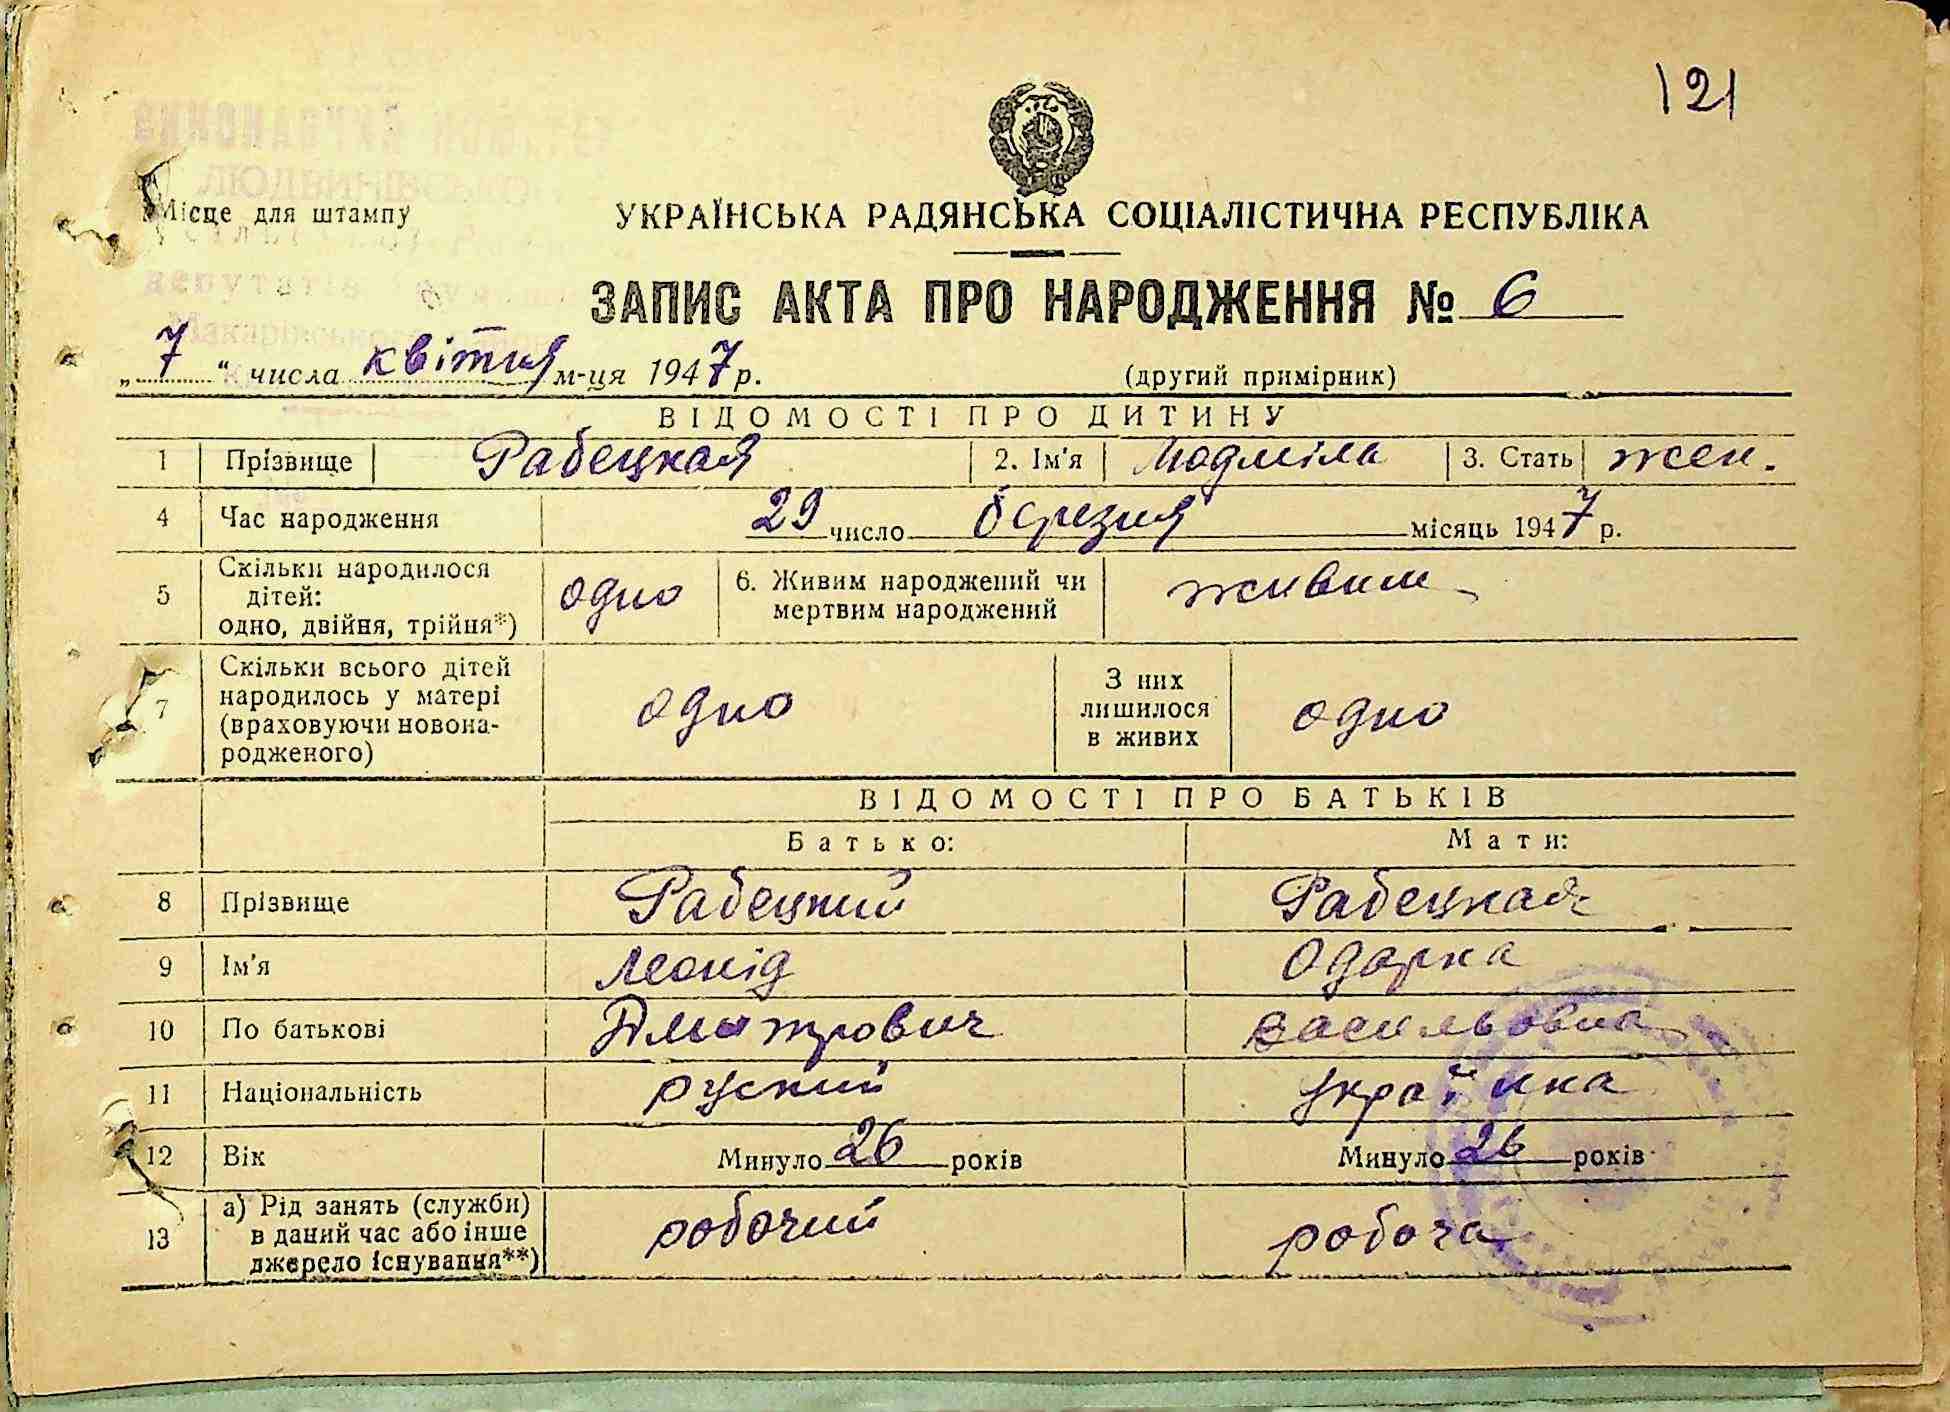 121
Місце для штампу
УКРАЇНСЬКА РАДЯНСЬКА СОЦІАЛІСТИЧНА РЕСПУБЛІКА
ЗАПИС АКТА ПРО НАРОДЖЕННЯ № 6
„7“ числа квітня м-ця 1947 р.
(другий примірник)
ВІДОМОСТІ ПРО ДИТИНУ
1 Прізвище Рабецкая 2. Ім'я Людміла 3. Стать жен.
4 Час народження 29 число березня місяць 1947 р.
5 Скільки народилося дітей: одно, двійня, трійня*) одно 6. Живим народжений чи мертвим народжений живим
7 Скільки всього дітей народилось у матері (враховуючи новонародженого) одно З них лишилося в живих одно
ВІДОМОСТІ ПРО БАТЬКІВ
Батько: Мати:
8 Прізвище Рабецкий Рабецкая
9 Ім'я Леонід Одарка
10 По батькові Дмитрович Васильовна
11 Національність руский українка
12 Вік Минуло 26 років Минуло 26 років
13 а) Рід занять (служби) в даний час або інше джерело існування**) робочий робоча